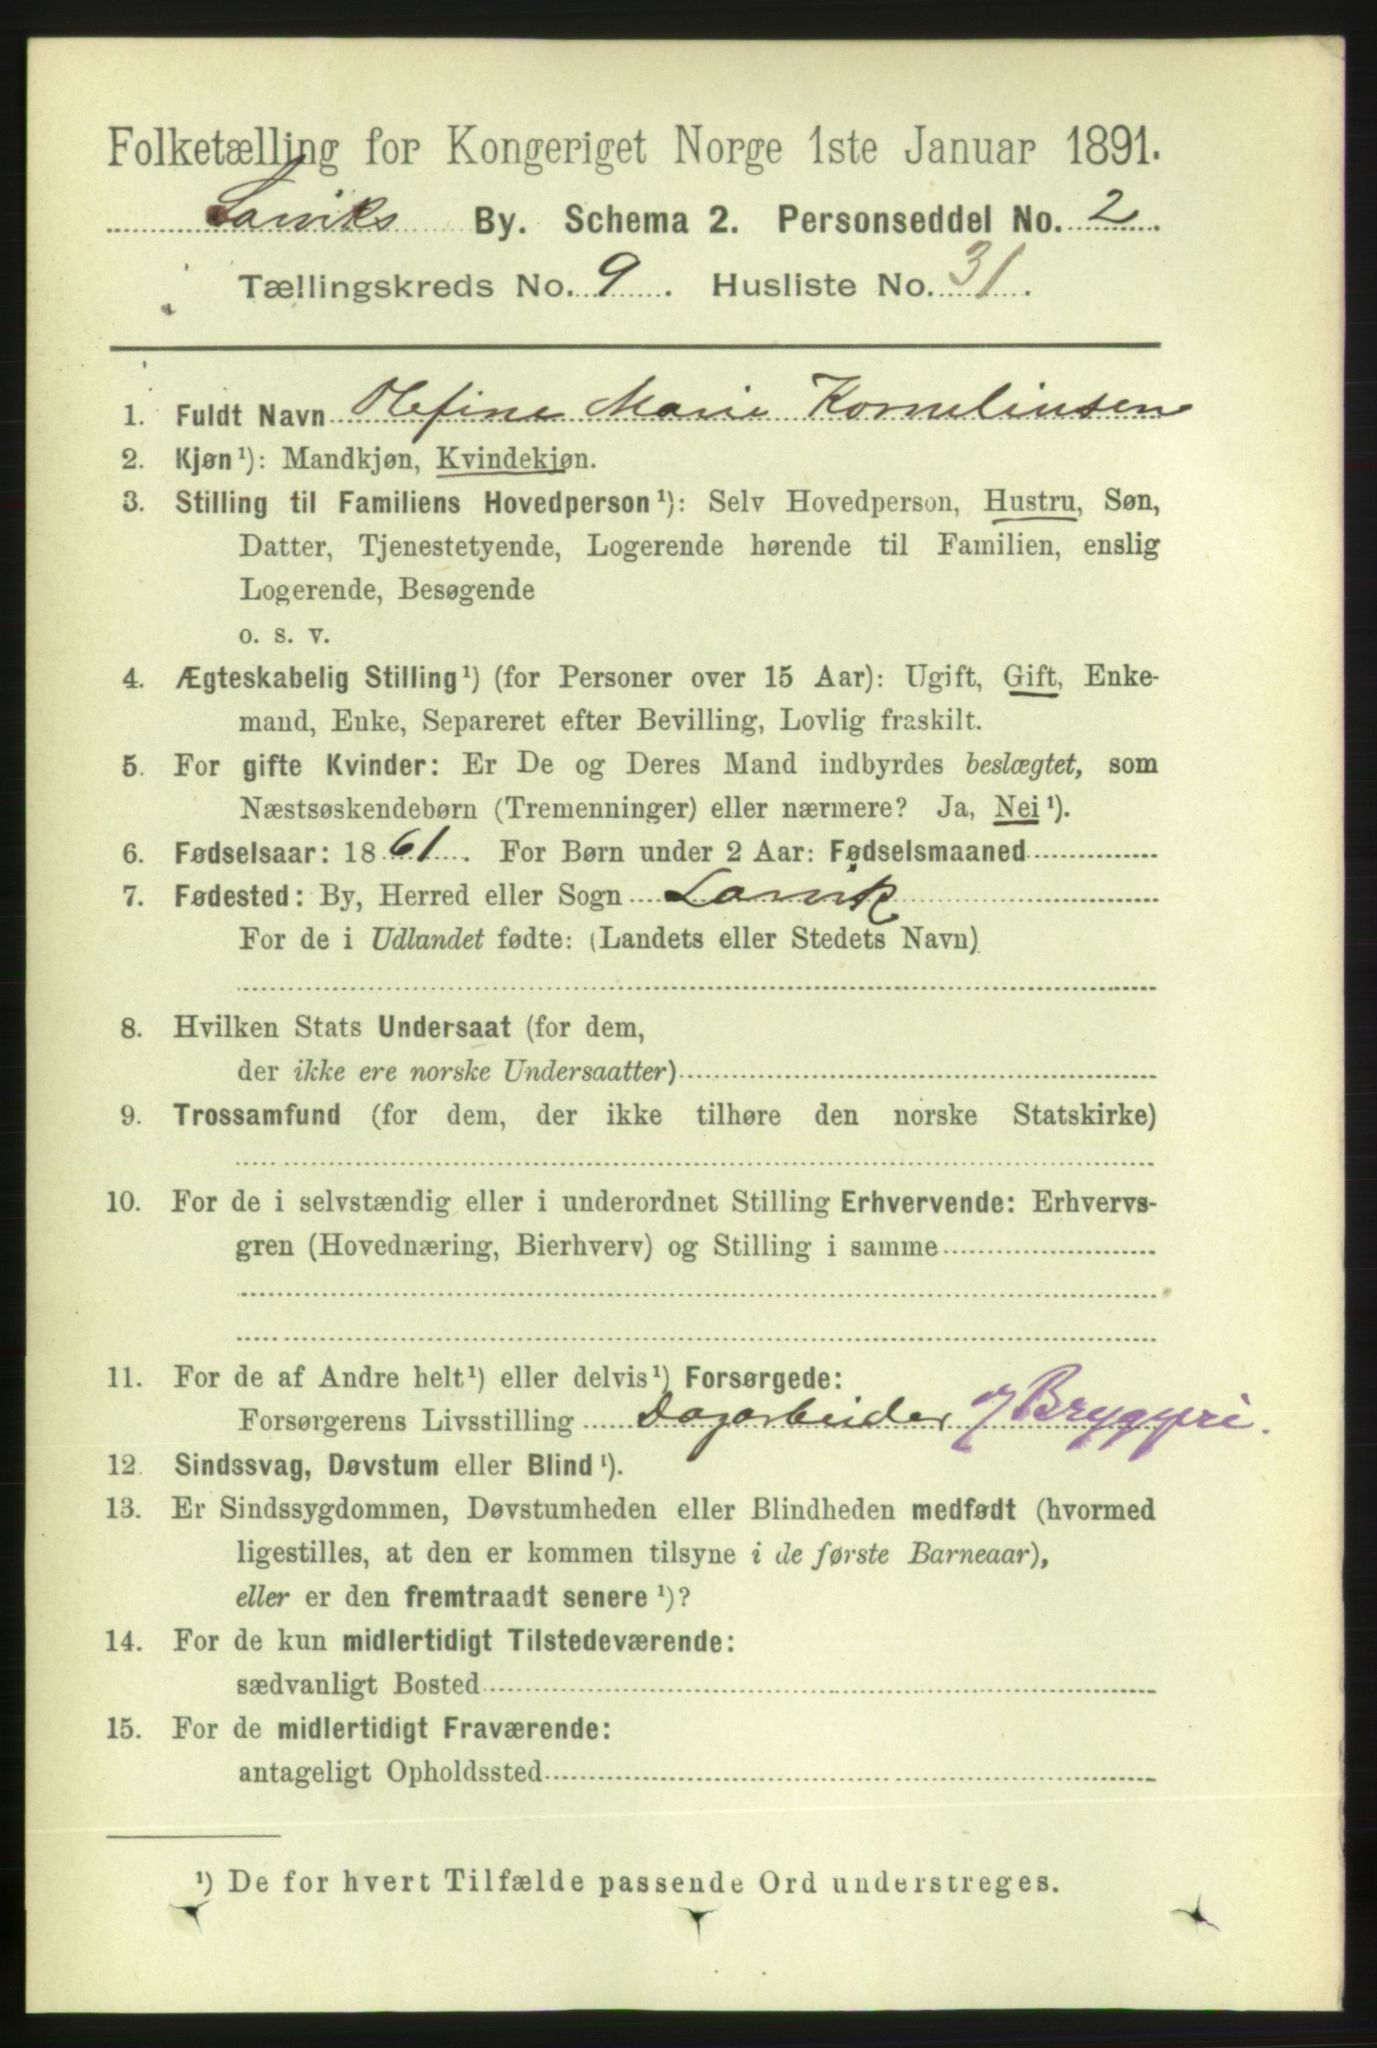 Folketælling for Kongeriget Norge 1ste Januar 1891.
Larviks By. Schema 2. Personseddel No. 2.
Tællingskreds No. 9. Husliste No. 31.
1. Fuldt Navn Olefine Marie Korneliusen
2. Kjøn¹): Mandkjøn, Kvindekjøn.
3. Stilling til Familiens Hovedperson¹): Selv Hovedperson, Hustru, Søn,
Datter, Tjenestetyende, Logerende hørende til Familien, enslig
Logerende, Besøgende
o. s. v.
4. Ægteskabelig Stilling¹) (for Personer over 15 Aar): Ugift, Gift, Enke-
mand, Enke, Separeret efter Bevilling, Lovlig fraskilt.
5. For gifte Kvinder: Er De og Deres Mand indbyrdes beslægtet, som
Næstsøskendebørn (Tremenninger) eller nærmere? Ja, Nei¹).
6. Fødselsaar: 1861. For Børn under 2 Aar: Fødselsmaaned
7. Fødested: By, Herred eller Sogn Larvik
For de i Udlandet fødte: (Landets eller Stedets Navn)
8. Hvilken Stats Undersaat (for dem,
der ikke ere norske Undersaatter)
9. Trossamfund (for dem, der ikke tilhøre den norske Statskirke)
10. For de i selvstændig eller i underordnet Stilling Erhvervende: Erhvervs-
gren (Hovednæring, Bierhverv) og Stilling i samme
11. For de af Andre helt¹) eller delvis¹) Forsørgede:
Forsørgerens Livsstilling Dagarbeider / Bryggeri.
12. Sindssvag, Døvstum eller Blind¹).
13. Er Sindssygdommen, Døvstumheden eller Blindheden medfødt (hvormed
ligestilles, at den er kommen tilsyne i de første Barneaar),
eller er den fremtraadt senere¹)?
14. For de kun midlertidigt Tilstedeværende:
sædvanligt Bosted
15. For de midlertidigt Fraværende:
antageligt Opholdssted
¹) De for hvert Tilfælde passende Ord understreges.